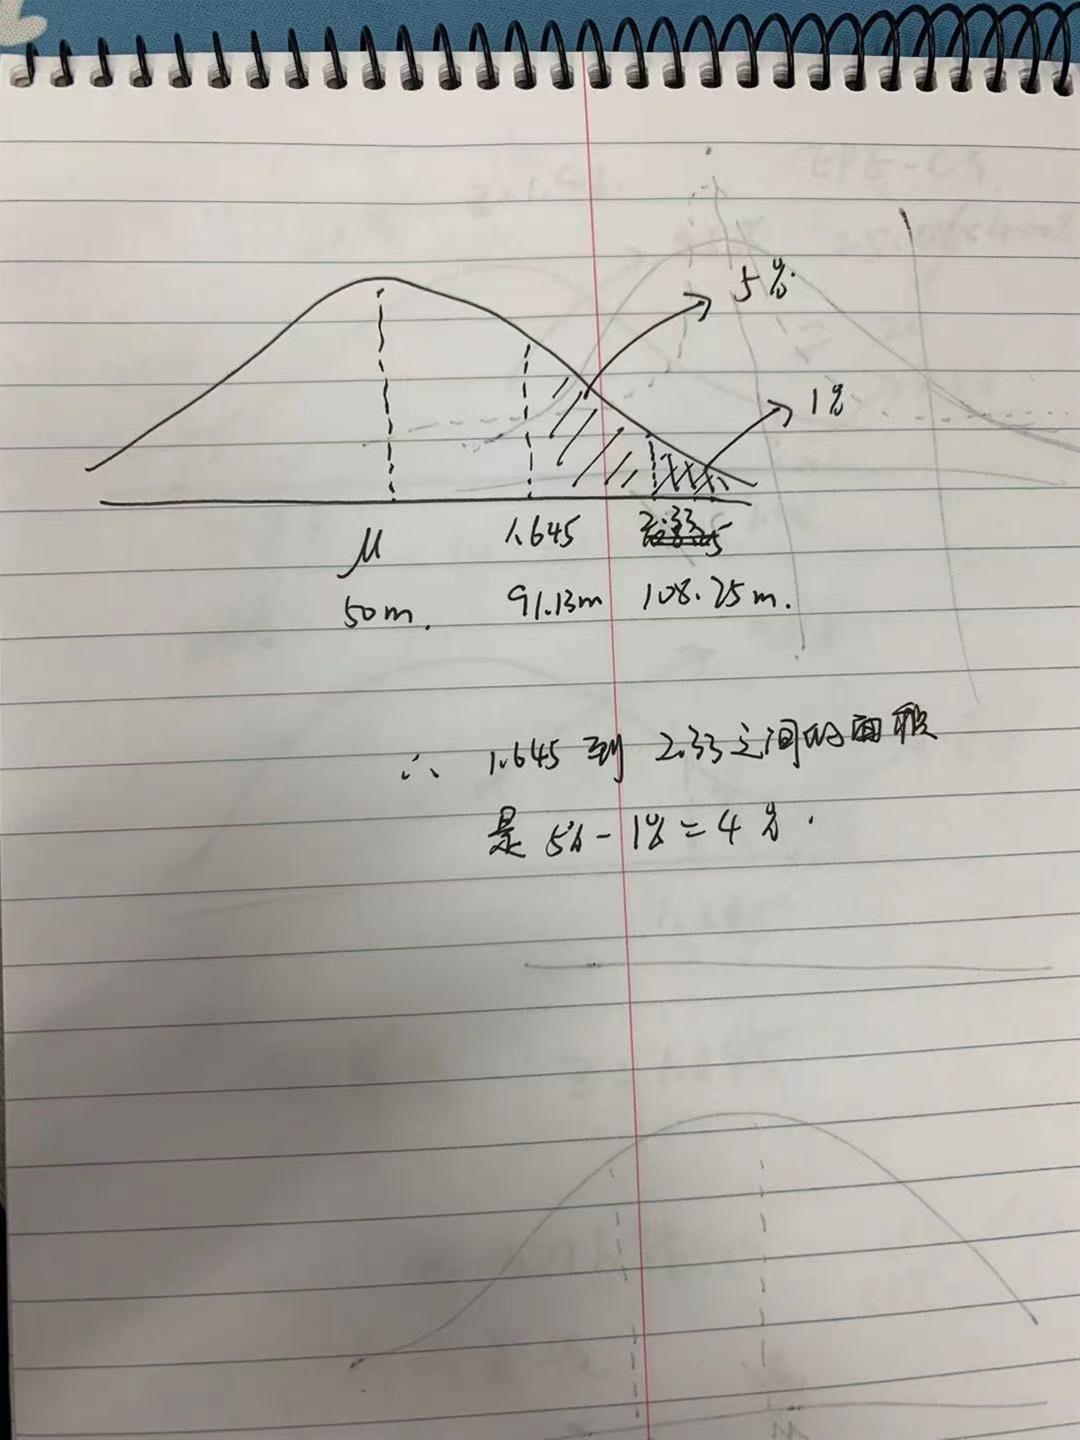 5%
1%
μ 1.645 2.33
50m. 91.13m 108.25m.
∴ 1.645 到 2.33之间的面积
是 5% - 1% = 4%.